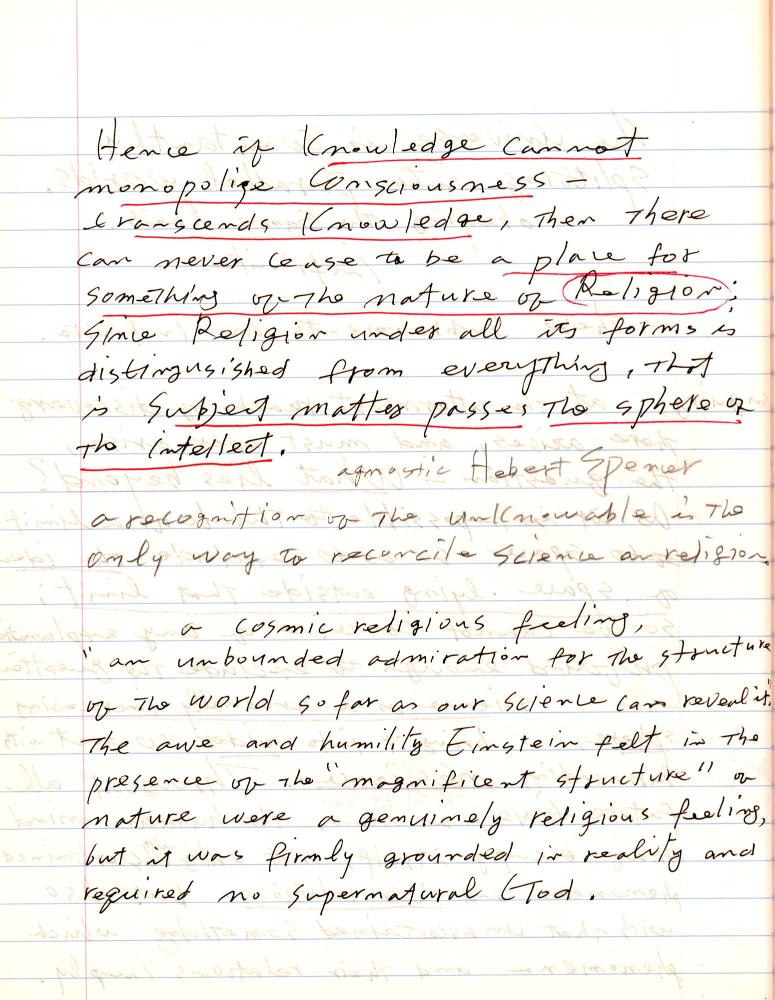 Hence if Knowledge cannot
monopolize Consciousness –
transcends Knowledge, Then There
can never cease to be a place for
something of the nature of Religion;
Since Religion under all its forms is
distingusished from everything, That
is Subject matter passes The sphere of
The intellect.
agnostic Hebert Spencer
a recognition of The UnKnowable is The
only way to reconcile Science an religion.
a cosmic religious feeling,
"an unbounded admiration for The structure
of The world so far as our science can reveal it".
The awe and humility Einstein felt in The
presence of The "magnificent structure" of
nature were a genuinely religious feeling,
but it was firmly grounded in reality and
required no supernatural God.